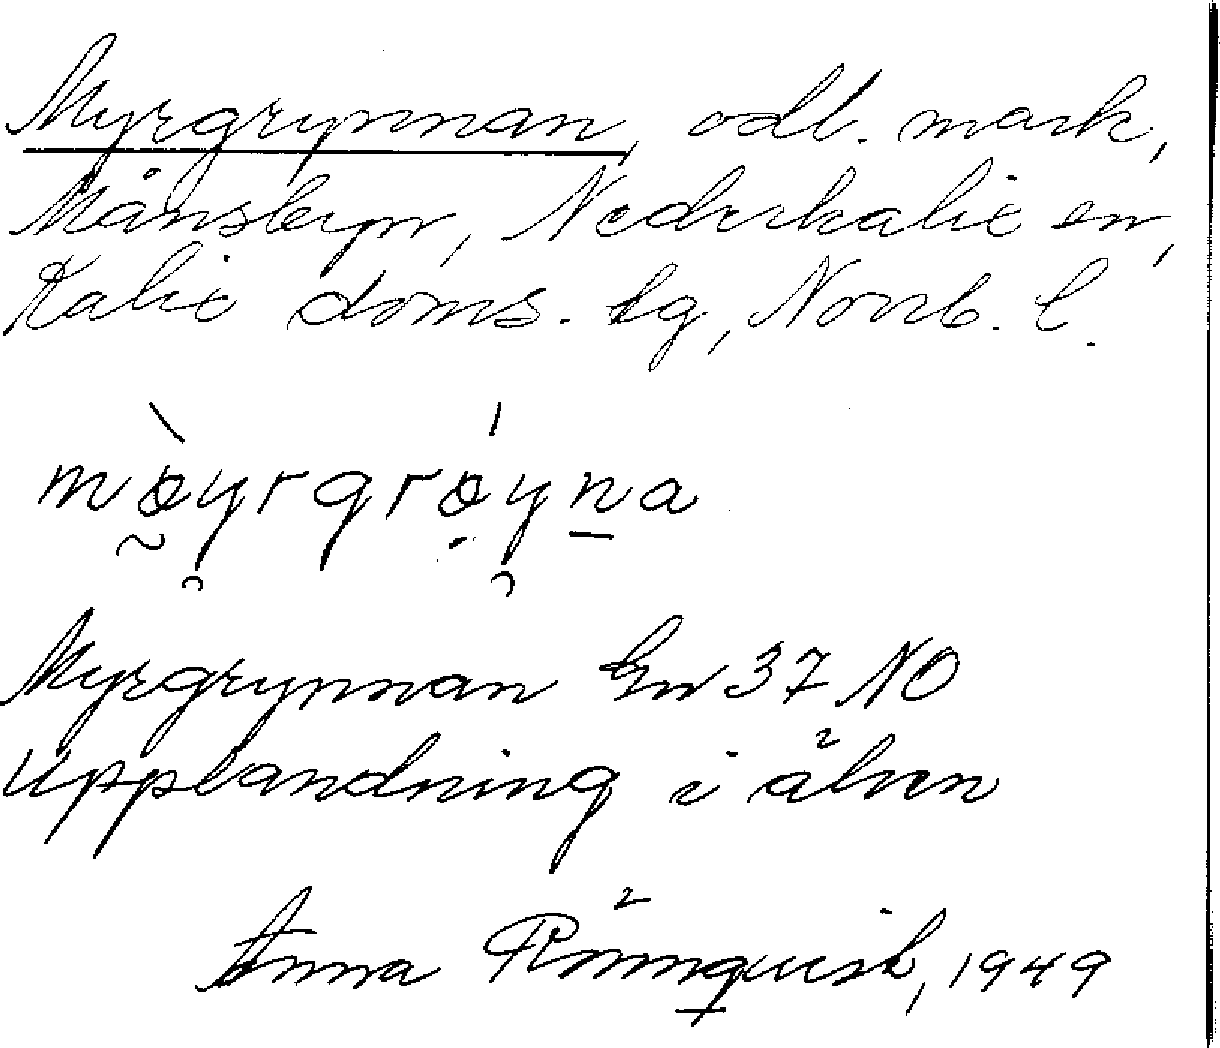 Myrgrynnan, odl. mark,
Månsbyn, Nederkalix sn,
Kalix doms. tg, Norrb. l.
mø̀yrgrǿyna
Myrgrynnan En 37 NO
Upplandning i älven
Anna Rönnqvist, 1949